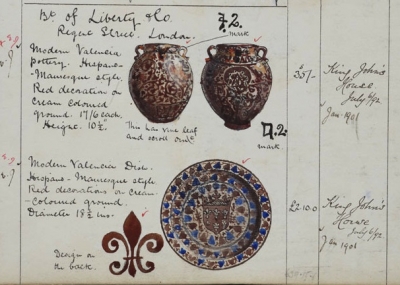 Bt of Liberty & Co.
Regent Street. London.
72.
mark
Modern Valencia
pottery. Hispano-
Mauresque style.
Red decoration on
Cream Coloured
ground. 17/6 each.
Height. 10½.
This has vine leaf
and scroll
72
mark
35/-
King John's
House
July 6/92.
Jan 1901
Modern Valencia Dish.
Hispano-Mauresque style
Red decorations on Cream
-Coloured ground
Diameter 18½ ins.
Design on
the back.
£2.10.0
King John's
House
July 6/92.
Jan 1901